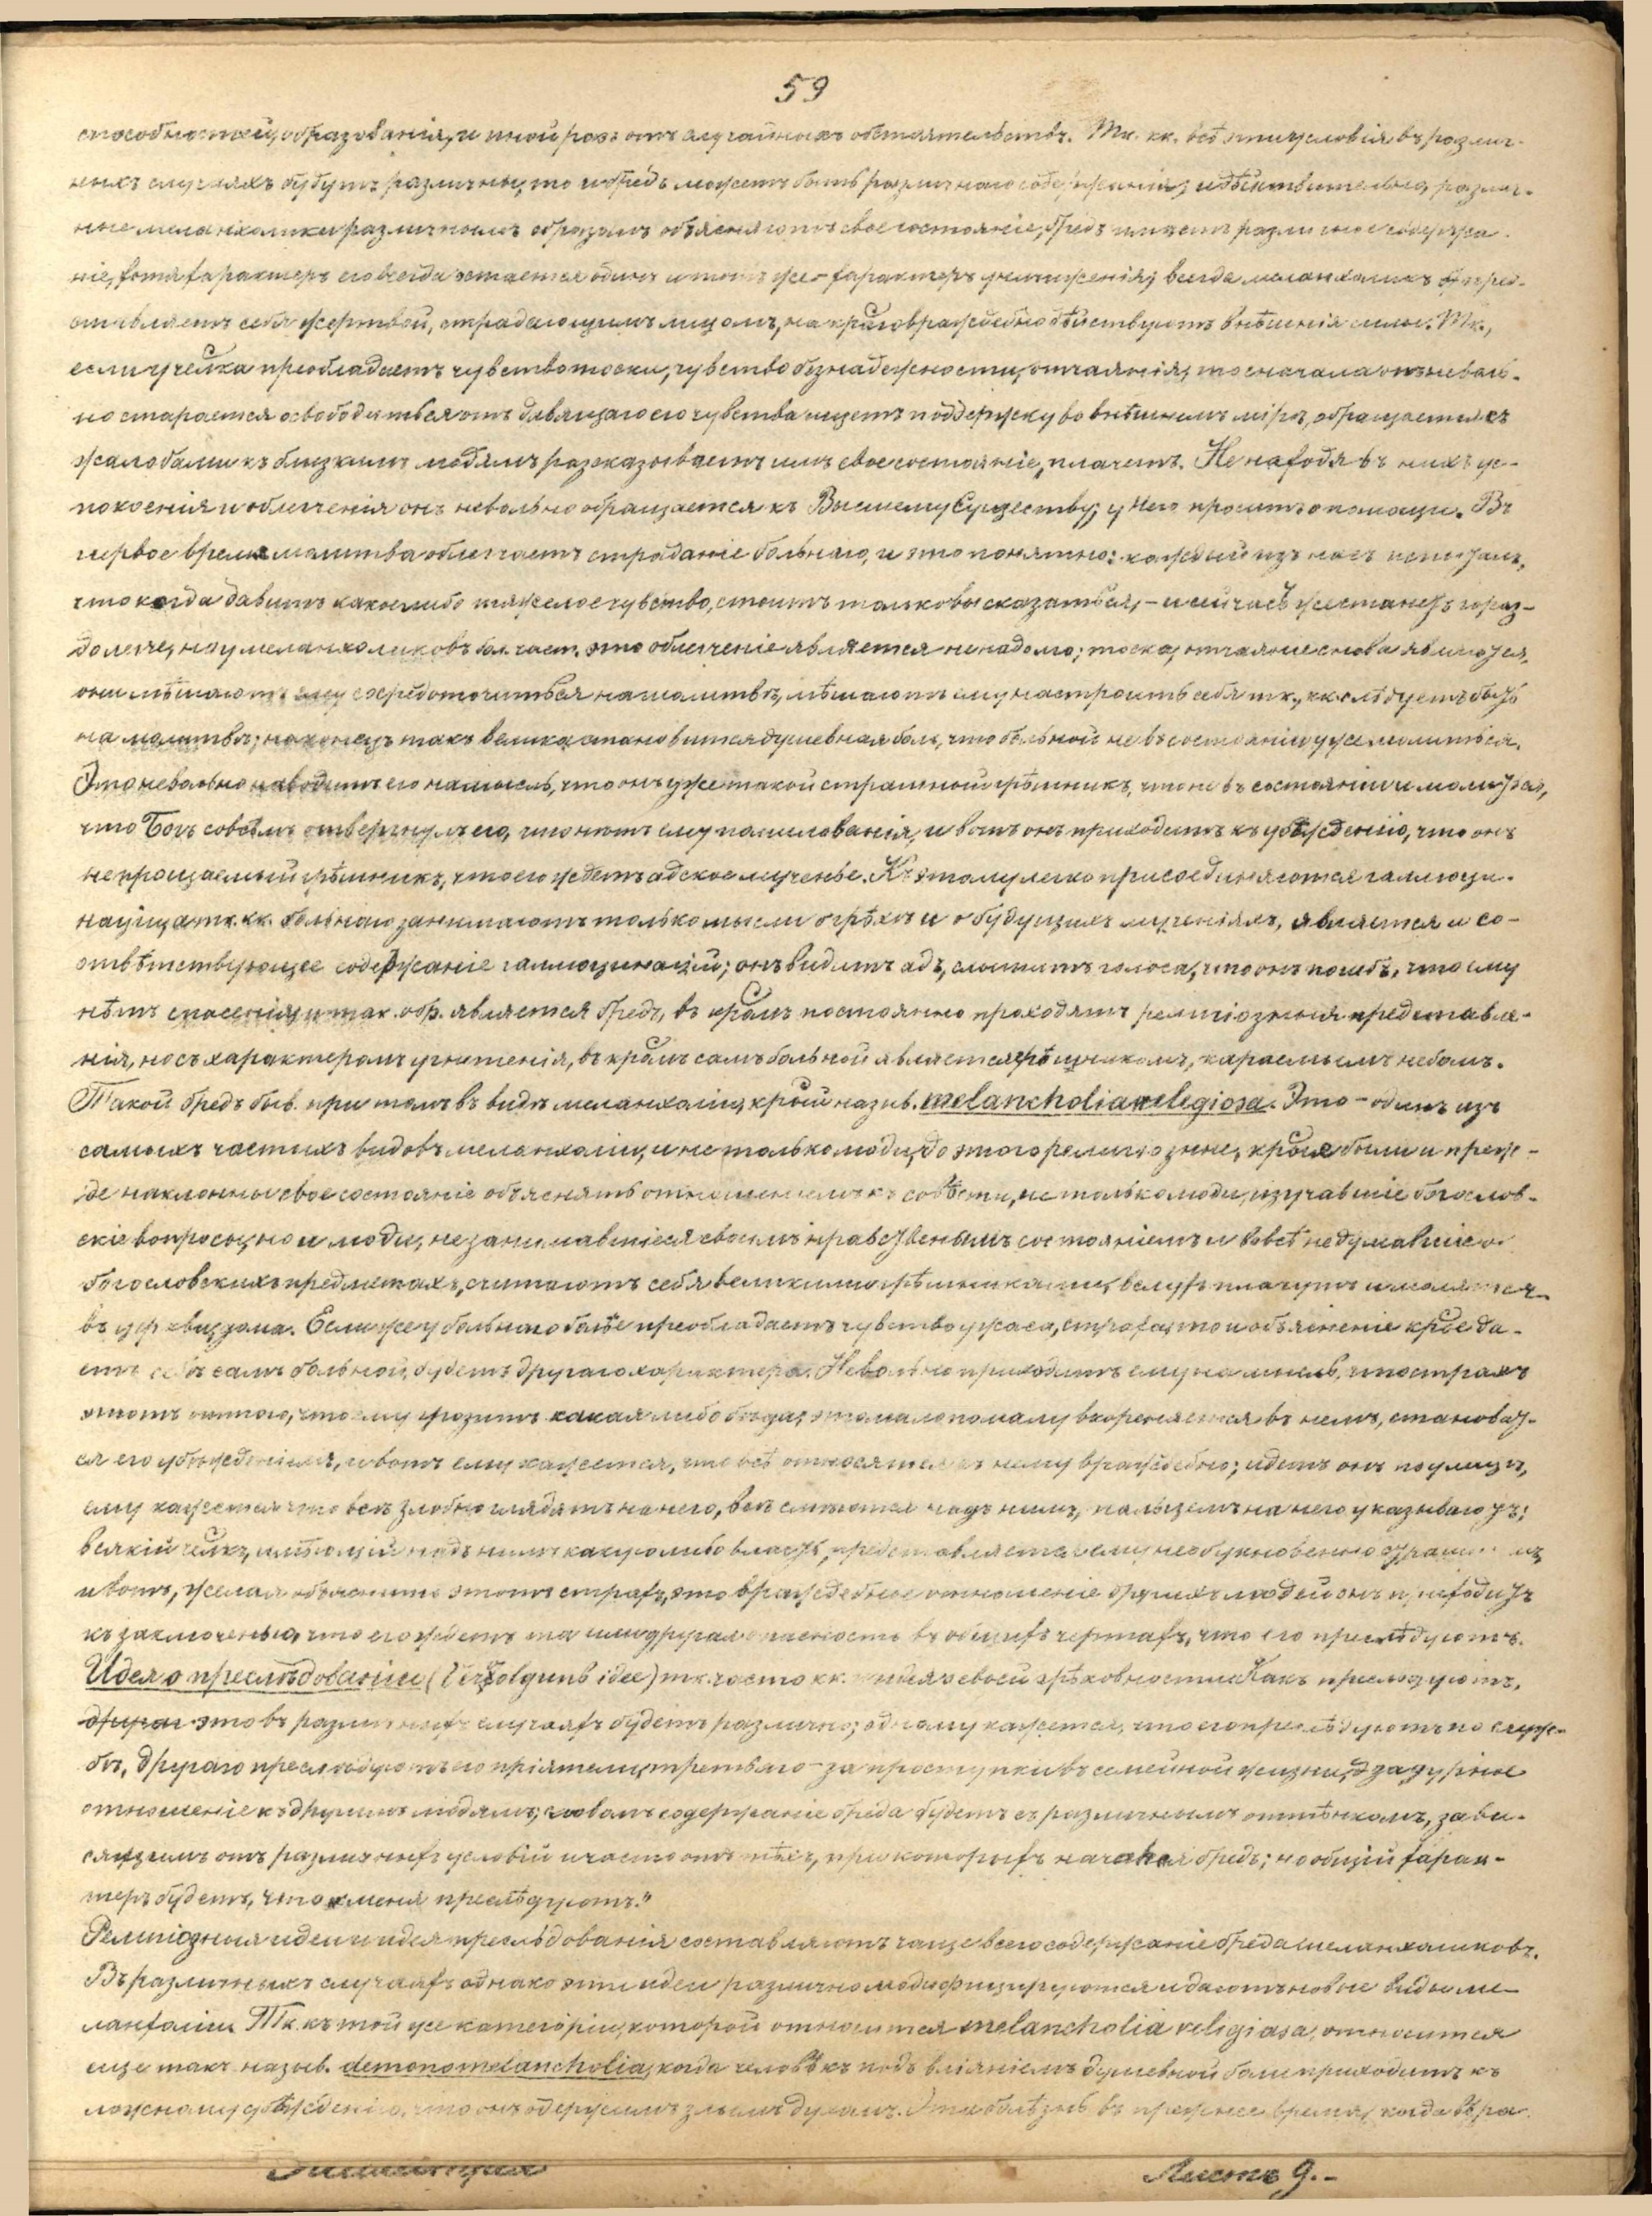 59
способностей, образованія, и иной разъ отъ случайныхъ обстоятельствъ. Тк. кк. всѣ эти условія въ различ-
ныхъ случаяхъ будутъ различны, то и бредъ можетъ быть различнаго содержанія; и дѣйствительно, различ-
ные меланхолики различнымъ образомъ объясняютъ свое состояніе, бредъ имѣетъ различное содержа-
ніе, хотя характеръ его всегда остается одинъ и тотъ же – характеръ униженія; всегда меланхоликъ пред-
ставляетъ себя жертвой, страдающимъ лицомъ, на крго враждебно дѣйствуютъ внѣшнія силы. Тк.,
если у челка преобладаетъ чувство тоски, чувство безнадежности, отчаянія, то сначала онъ неволь-
но старается освободиться отъ давящаго его чувства ищетъ поддержку во внѣшнемъ мірѣ, обращается съ
жалобами къ близкимъ людямъ разсказываетъ имъ свое состояніе, плачетъ. Не находя въ нихъ ус-
покоенія и облегченія онъ невольно обращается къ Высшему Существу, у Него проситъ о помощи. Въ
первое время молитва облегчаетъ страданіе больнаго, и это понятно: каждый изъ насъ испыталъ,
что когда давитъ какое либо тяжелое чувство, стоитъ только высказаться, – и сейчасъ же станетъ гораз-
до легче, но у меланхоликовъ бол. част. это облегченіе является не надолго; тоска, отчаяніе снова являются,
они мѣшаютъ ему сосредоточиться на молитвѣ, мѣшаютъ ему настроить себя тк., кк. слѣдуетъ быть
на молитвѣ; наконецъ такъ велика становится душевная боль, что больной не въ состояніи уже молиться.
Это невольно наводитъ его на мысль, что онъ уже такой страшный грѣшникъ, что не въ состояніи и молиться,
что Богъ совсѣмъ отвергнулъ его, что нѣтъ ему помилованія, и вотъ онъ приходитъ къ убѣжденію, что онъ
непрощаемый грѣшникъ, что его ждетъ адское мученье. Къ этому легко присоединяются галлюци-
націи, а тк. кк. больнаго занимаютъ только мысли о грѣхѣ и о будущихъ мученіяхъ, является и со-
отвѣтствующее содержаніе галлюцинацій; онъ видитъ адъ, слышитъ голоса, что онъ погибъ, что ему
нѣтъ спасенія, и так. обр. является бредъ, въ кромъ постоянно проходятъ религіозныя представле-
нія, но съ характеромъ угнетенія, въ кромъ самъ больной является грѣшникомъ, караемымъ небомъ.
Такой бредъ быв. при томъ въ видѣ меланхоліи, крый назыв. melancholia religiosa. Это – одинъ изъ
самыхъ частыхъ видовъ меланхоліи, и не только люди, до этого религіозные, крые были и преж-
де наклонны свое состояніе объяснять отношеніемъ къ совѣсти, не только люди, изучавшіе богослов-
скіе вопросы, но и люди, не занимавшіеся своимъ нравственымъ состояніемъ и вовсе не думавшіе о
богословскихъ предметахъ, считаютъ себя великими грѣшниками, вслухъ плачутъ и молятся
въ ... Если же у больнаго болѣе преобладаетъ чувство ужаса, страха, то и объясненіе крое да-
етъ себѣ самъ больной, будетъ другаго характера. Невольно приходитъ ему на мысль, что страхъ
этотъ оттого, что ему грозитъ какая либо бѣда; это мало по малу вкореняется въ немъ, становит-
ся его убѣжденіемъ, и вотъ ему кажется, что всѣ относятся къ нему враждебно; идетъ онъ по улицѣ,
ему кажется что всѣ злобно глядятъ на него, всѣ смѣются надъ нимъ, пальцемъ на него указываютъ;
всякій челкъ, имѣющій надъ нимъ какую либо власть, представляется ему необыкновенно страшнымъ,
и вотъ, желая объяснить этотъ страхъ, это враждебное отношеніе другихъ людей онъ и приходитъ
къ заключенью, что его ждетъ та или другая опасность въ общихъ чертахъ, что его преслѣдуютъ.
Идея о преслѣдованіи (Verfolgungsidee) тк. часто кк. и идея о своей грѣховности. Какъ преслѣдуютъ,
это въ различныхъ случаяхъ будетъ различно; одному кажется, что его преслѣдуютъ по служ-
бѣ, другаго преслѣдуютъ его пріятели, третьяго – за проступки въ семейной жизни, за дурное
отношеніе къ другимъ людямъ; словомъ содержаніе бреда будетъ съ различнымъ оттѣнкомъ, зави-
сящимъ отъ различныхъ условій и часто отъ тѣхъ, при которыхъ начался бредъ; но общій харак-
теръ будетъ, что „меня преслѣдуютъ."
Религіозныя идеи и идея преслѣдованія составляютъ чаще всего содержаніе бреда меланхоликовъ.
Въ различныхъ случаяхъ однако эти идеи различно модифицируются и даютъ новые виды ме-
ланхоліи. Тк. къ той же категоріи, которой относится melancholia religiosa, относится
еще такъ назыв. demonomelancholia, когда человѣкъ подъ вліяніемъ душевной боли приходитъ къ
ложному убѣжденію, что онъ одержимъ злымъ духомъ. Эта болѣзнь въ прежнее время, когда вѣра
Листъ 9.–